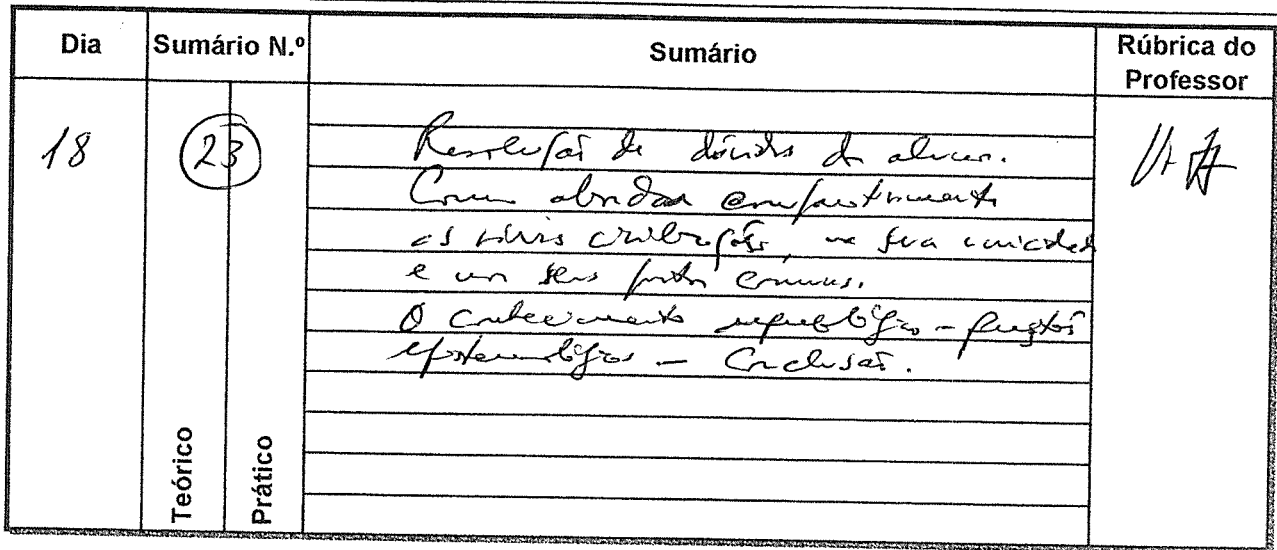 Dia
Sumário N.º
Sumário
Rúbrica do
Professor
18
23
Resolução de dúvidas de alunos.
Como abordar
as várias civilizações, na sua unicidade
e em seus pontos comuns.
O conhecimento - questões
epistemológicas - Conclusão.
Teórico
Prático